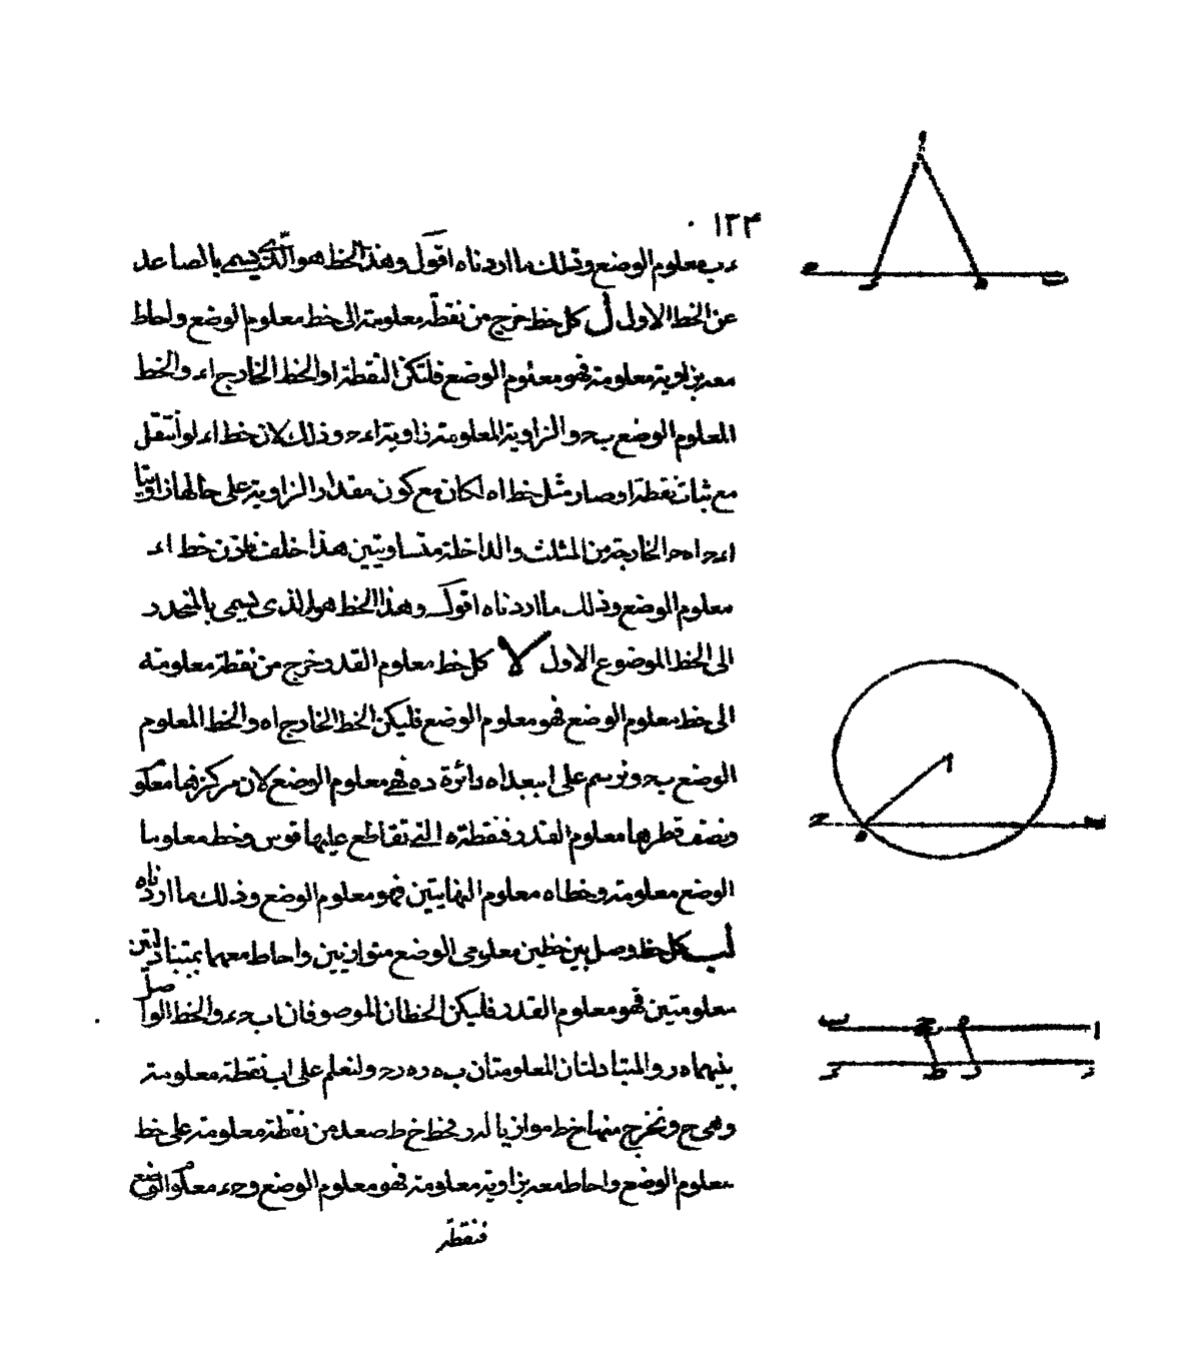 ١٣٤
ء ب معلوم الوضع وذلك ما اردناه اقول وهذا الخط هو الذى يسمى بالصاعد
عن الخط الاول ل كل خط خرج من نقطة معلومة الى خط معلوم الوضع واحاط
معه بزاوية معلومة فهو معلوم الوضع فلتكن النقطة ا والخط الخارج اء والخط
المعلوم الوضع ب حـ والزاوية المعلومة زاوية اء حـ وذلك لان خط اء لو انتقل
مع ثبات نقطة ا وصار مثل خط اه لكان مع كون مقدار الزاوية على حالها زاويتا
اء حـ اه حـ الخارجة من المثلث والداخلة متساويتين هذا خلف فاذن خط اء
معلوم الوضع وذلك ما اردناه اقول وهذا الخط هو الذى يسمى بالمنحدر
الى الخط الموضوع الاول لا كل خط معلوم القدر خرج من نقطة معلومة
الى خط معلوم الوضع فهو معلوم الوضع فليكن الخط الخارج اه والخط المعلوم
الوضع ب حـ ونرسم على ا ببعد اه دائرة ده فهى معلوم الوضع لان مركزها معلوم
ونصف قطرها معلوم القدر فنقطة ه التى تقاطع عليها قوس وخط معلوما
الوضع معلومة وخط اه معلوم النهايتين فهو معلوم الوضع وذلك ما اردناه
لب كل خط وصل بين خطين معلومى الوضع متوازيين واحاط معهما بمتبادلتين
معلومتين فهو معلوم القدر فليكن الخطان الموصوفان اب حـ ء والخط الواصل
بينهما ه ر والمتبادلتان المعلومتان ب ه ر ه ر حـ ولنعلم على اب نقطة معلومة
وهى ح ونخرج منها خط موازيا له ر فخط ح ط صعد من نقطة معلومة على خط
معلوم الوضع واحاط معه بزاوية معلومة فهو معلوم الوضع و حـ ء معلوم الوضع
فنقطة